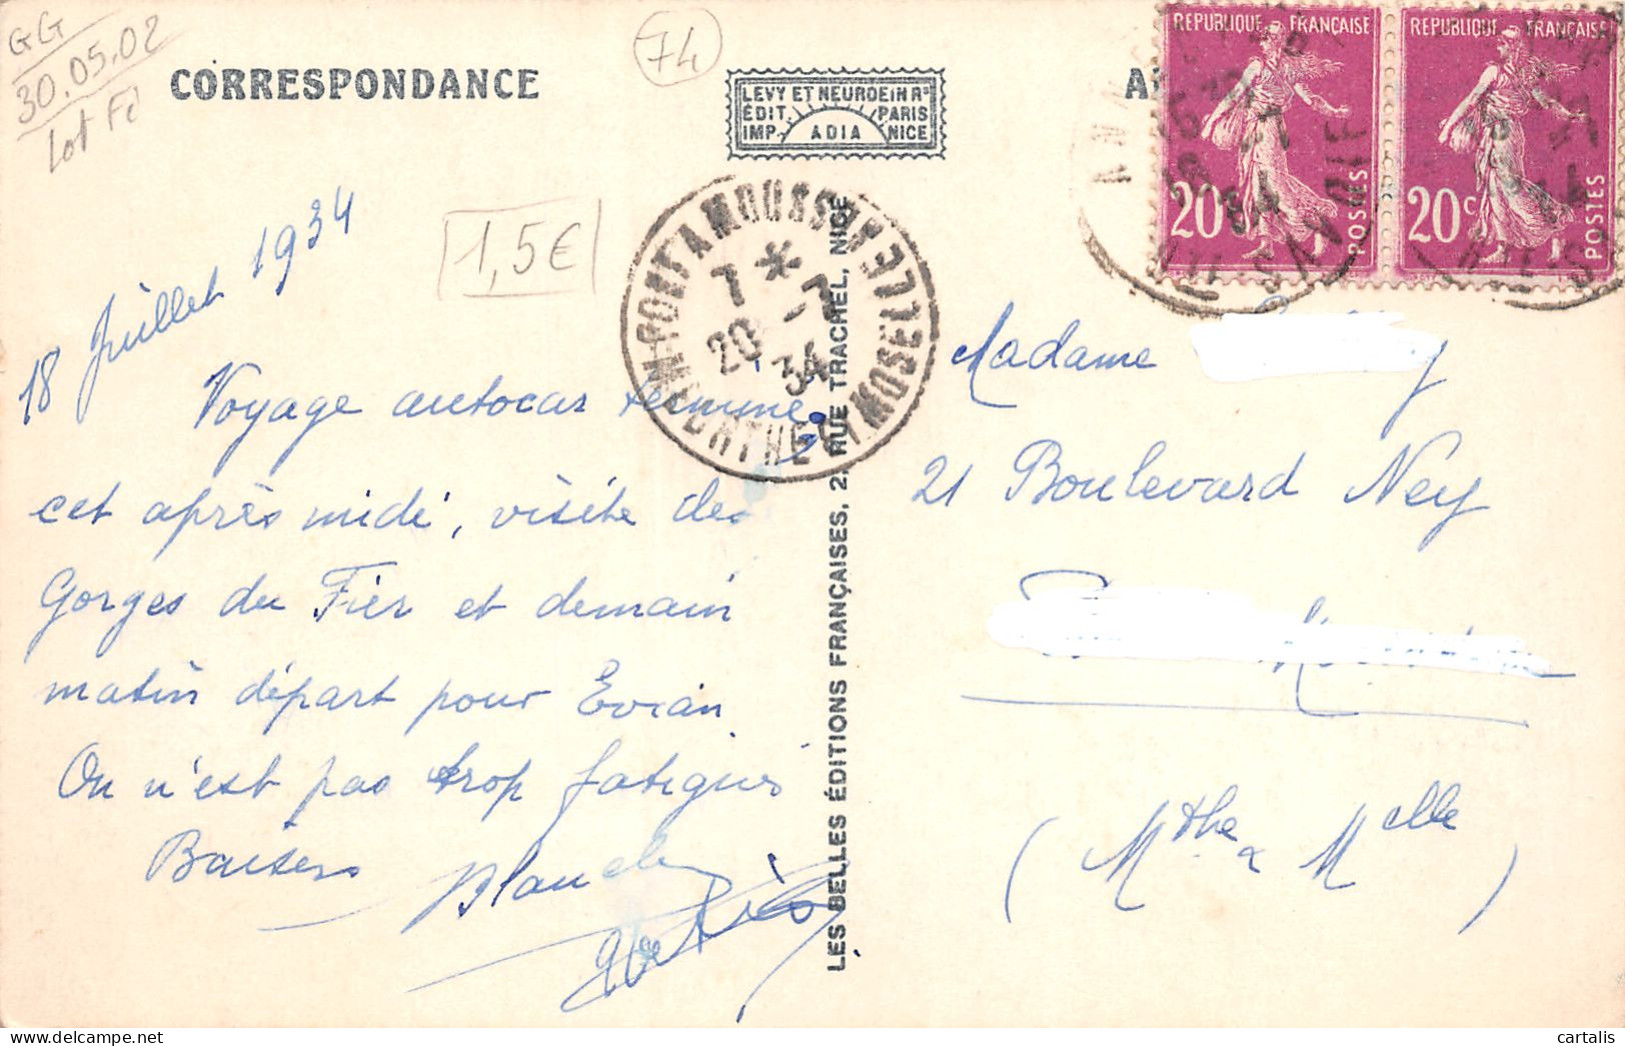 GG
30.05.02
Lot Fi
74
CORRESPONDANCE
LEVY ET NEURDEIN Rs
ÉDIT. PARIS
IMP. ADIA NICE
REPUBLIQUE FRANÇAISE
20c
POSTES
REPUBLIQUE FRANÇAISE
20c
POSTES
1,5€
PONT A MOUSSON
7 *
20 -7
34
MEURTHE ET MOSELLE
18 Juillet 1934
Voyage autocar terminé,
cet après midi, visite des
Gorges du Fier et demain
matin départ pour Evian
On n'est pas trop fatigués
Baisers Blanche
LES BELLES ÉDITIONS FRANÇAISES, 2, RUE TRACHEL, NICE
Madame
21 Boulevard Ney
(Mthe & Melle)
cartalis